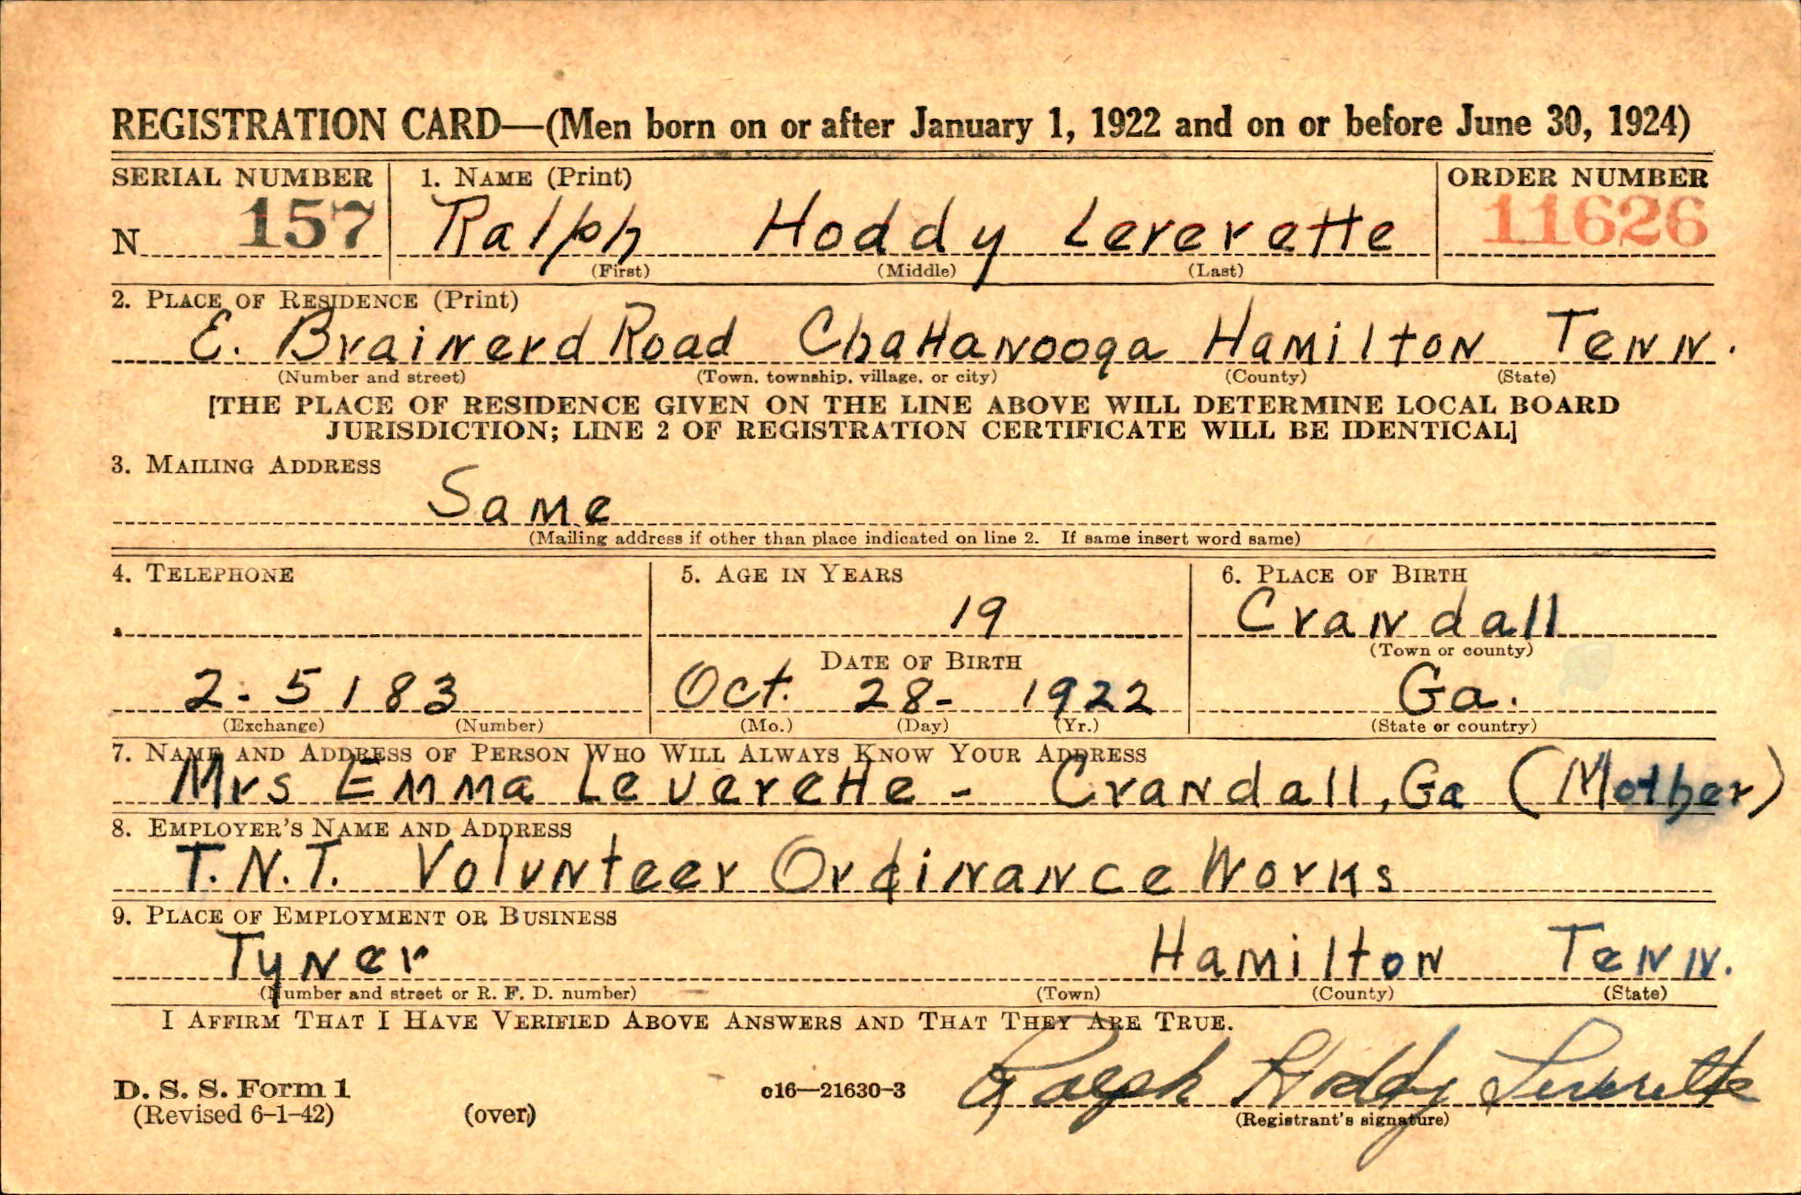 REGISTRATION CARD—(Men born on or after January 1, 1922 and on or before June 30, 1924)
SERIAL NUMBER 1. NAME (Print) ORDER NUMBER
N 157 Ralph Hoddy Leverette 11626
(First) (Middle) (Last)
2. PLACE OF RESIDENCE (Print)
E. Brainerd Road Chattanooga Hamilton Tenn.
(Number and street) (Town, township, village, or city) (County) (State)
[THE PLACE OF RESIDENCE GIVEN ON THE LINE ABOVE WILL DETERMINE LOCAL BOARD
JURISDICTION; LINE 2 OF REGISTRATION CERTIFICATE WILL BE IDENTICAL]
3. MAILING ADDRESS
Same
(Mailing address if other than place indicated on line 2. If same insert word same)
4. TELEPHONE 5. AGE IN YEARS 6. PLACE OF BIRTH
19 Crandall
DATE OF BIRTH (Town or county)
2-5183 Oct. 28- 1922 Ga.
(Exchange) (Number) (Mo.) (Day) (Yr.) (State or country)
7. NAME AND ADDRESS OF PERSON WHO WILL ALWAYS KNOW YOUR ADDRESS
Mrs Emma Leverette - Crandall, Ga (Mother)
8. EMPLOYER'S NAME AND ADDRESS
T.N.T. Volunteer Ordinance Works
9. PLACE OF EMPLOYMENT OR BUSINESS
Tyner Hamilton Tenn.
(Number and street or R. F. D. number) (Town) (County) (State)
I AFFIRM THAT I HAVE VERIFIED ABOVE ANSWERS AND THAT THEY ARE TRUE.
D. S. S. Form 1 c16—21630-3 Ralph Hoddy Leverette
(Revised 6-1-42) (over) (Registrant's signature)